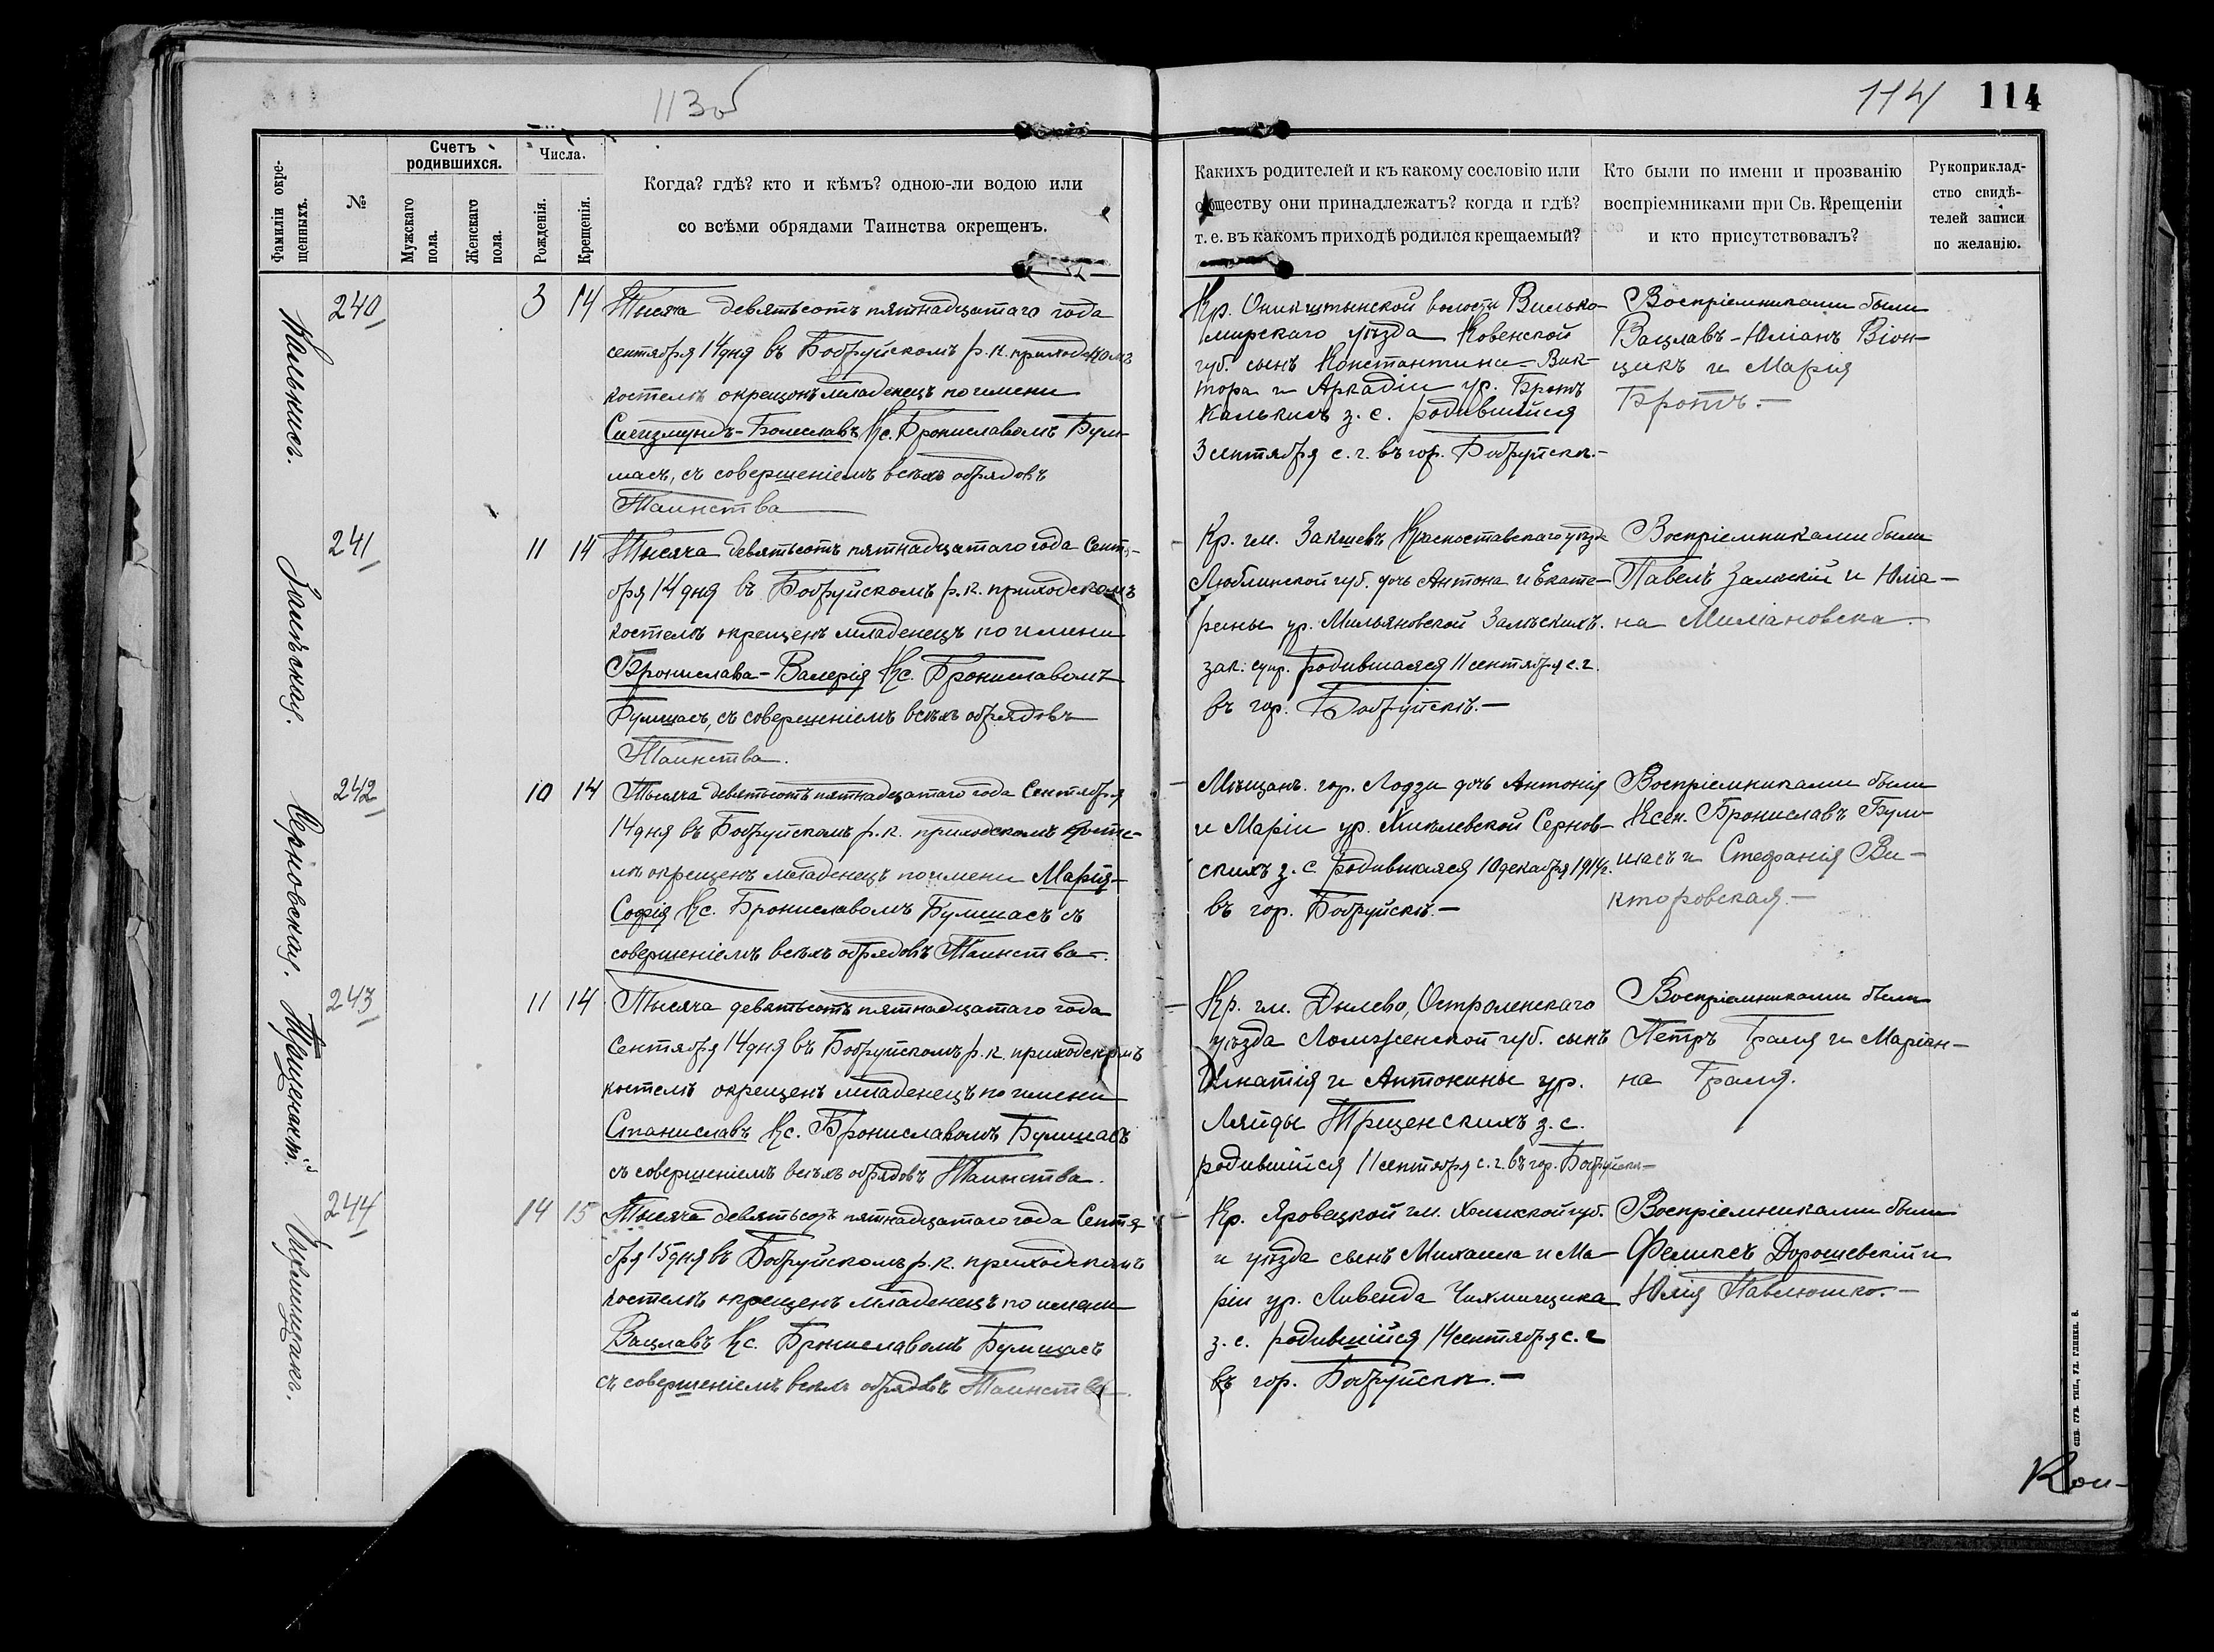 113об
114 114
Фамиліи окре-
щенныхъ.
№
Счетъ
родившихся.
Мужскаго
пола.
Женскаго
пола.
Числа.
Рожденія.
Крещенія.
Когда? гдѣ? кто и кѣмъ? одною-ли водою или
со всѣми обрядами Таинства окрещенъ.
Какихъ родителей и къ какому сословію или
обществу они принадлежатъ? когда и гдѣ?
т. е. въ какомъ приходѣ родился крещаемый?
Кто были по имени и прозванію
воспріемниками при Св. Крещеніи
и кто присутствовалъ?
Рукоприклад-
ство свидѣ-
телей записи
по желанію.
Калькисъ.
240
3 14
Тысяча девятьсотъ пятнадцатаго года
сентября 14 дня въ Бобруйскомъ р. к. приходском
костелѣ окрещенъ младенецъ по имени
Сигизмундъ-Болеславъ Кс. Брониславомъ Бум-
шасъ, съ совершеніемъ всѣхъ обрядовъ
Таинства
Кр. Оникштынской волости Вилько-
мирскаго уѣзда Ковенской
губ. сынъ Константина-Вик-
тора и Аркадіи ур. Бротъ
Калькисъ з. с. родившійся
3 сентября с. г. въ гор. Бобруйскѣ.-
Воспріемниками были
Вацлавъ-Юліанъ Віон-
цикъ и Марія
Бротъ.-
Замѣская.
241
11 14
Тысяча девятьсотъ пятнадцатаго года Сентя-
бря 14 дня въ Бобруйскомъ р. к. приходскомъ
костелѣ окрещенъ младенецъ по имени
Бронислава-Валерія Кс. Брониславомъ
Бумшасъ, съ совершеніемъ всѣхъ обрядовъ
Таинства.
Кр. гм. Закшевъ Красноставскаго уѣзда
Люблинской губ. дочь Антона и Екате-
рины ур. Мильяновской Замѣскихъ.
зак. супр. родившаяся 11 сентября с. г.
въ гор. Бобруйскѣ.-
Воспріемниками были
Павелъ и Юліа-
на Миліановска.
Серновская.
242
10 14
Тысяча девятьсотъ пятнадцатаго года Сентября
14 дня въ Бобруйскомъ р. к. приходскомъ косте-
лѣ окрещенъ младенецъ по имени Марія-
Софія Кс. Брониславомъ Бумшасъ съ
совершеніемъ всѣхъ обрядовъ Таинства.
Мѣщанъ. гор. Лодзи дочь Антонія
и Маріи ур. Хмѣлевской Сернов-
скихъ з. с. родившаяся 10 декабря 1914 г.
въ гор. Бобруйскѣ.-
Воспріемниками были
Ксен. Брониславъ Бум-
шасъ и Стефанія Ви-
кторовская.-
Трщенскій.
243
11 14
Тысяча девятьсотъ пятнадцатаго года
Сентября 14 дня въ Бобруйскомъ р. к. приходскомъ
костелѣ окрещенъ младенецъ по имени
Станиславъ Кс. Брониславомъ Бумшасъ
съ совершеніемъ всѣхъ обрядовъ Таинства.
Кр. гм. Дылево, Остроленскаго
уѣзда Ломженской губ. сынъ
Игнатія и Антонины ур.
Ляйды Трщенскихъ з. с.
родившійся 11 сентября с. г. въ гор. Бобруйскѣ-
Воспріемниками были
Петръ Граля и Маріан-
на Граля.
244
14 15
Тысяча девятьсотъ пятнадцатаго года Сентя-
бря 15 дня въ Бобруйскомъ р. к. приходскомъ
костелѣ окрещенъ младенецъ по имени
Вацлавъ Кс. Брониславомъ Бумшасъ
съ совершеніемъ всѣхъ обрядовъ Таинства.
Кр. Яровецкой гм. Холмской губ.
и уѣзда сынъ Михаила и Ма-
ріи ур. Ливенда
з. с. родившійся 14 сентября с. г
въ гор. Бобруйскѣ.-
Воспріемниками были
Феликсъ Дорошевскій и
Юлія Павлюшко.-
СПБ. ГУБ. ТИП., УЛ. ГЛИНКИ, 8.